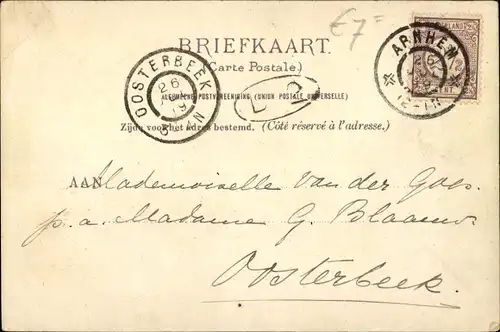 €7=
BRIEFKAART.
(Carte Postale)
ALGEMEENE POSTVEREENIGING (UNION POSTALE UNIVERSELLE)
Zijde voor het adres bestemd. (Côté réservé à l'adresse.)
OOSTERBEEK
26
ARNHEM
26
12-1N
AAN Mademoiselle van der Goes.
p.a. Madame G. Blaauw.
Oosterbeek.